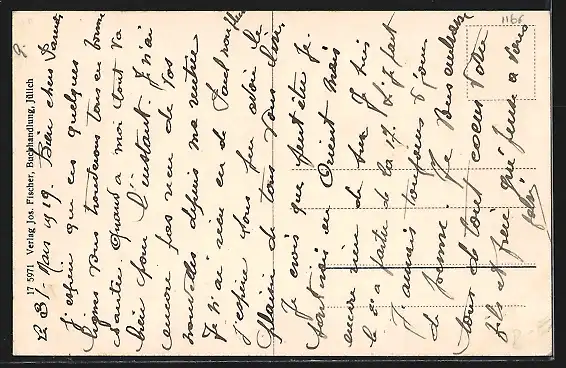 1166
17 5971 Verlag Jos. Fischer, Buchhandlung, Jülich
Le 31 Mars 1919. Bien chers Parents
J'espère que ces quelques
lignes vous trouverons tous en bonne
santée. Quand a moi tout va
bien pour l'instant. Je n'ai
encore pas reçu de vos
nouvelles depuis ma rentrée
Je n'ai rien eu de Paul non
j'espère vous pu avoir le
plaisir de tous vous lire.
Je crois que peut être je
partirai en Orient mais
encore rien de sur. Je suis
le a partir de la 17. Il fait
J'aurais toujours
de ferme. Je vous embrasse
tous de tout coeur Votre
fils et frère qui pense a vous